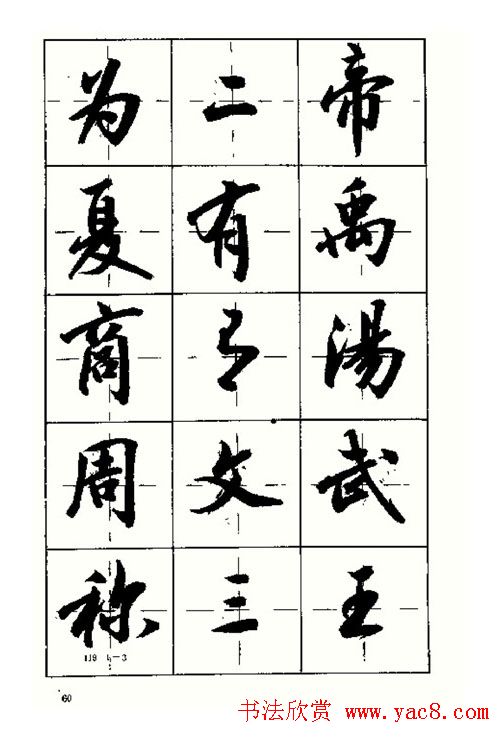 为二帝
夏有禹
商有湯
周文武
称三王
60
书法欣赏 www.yac8.com